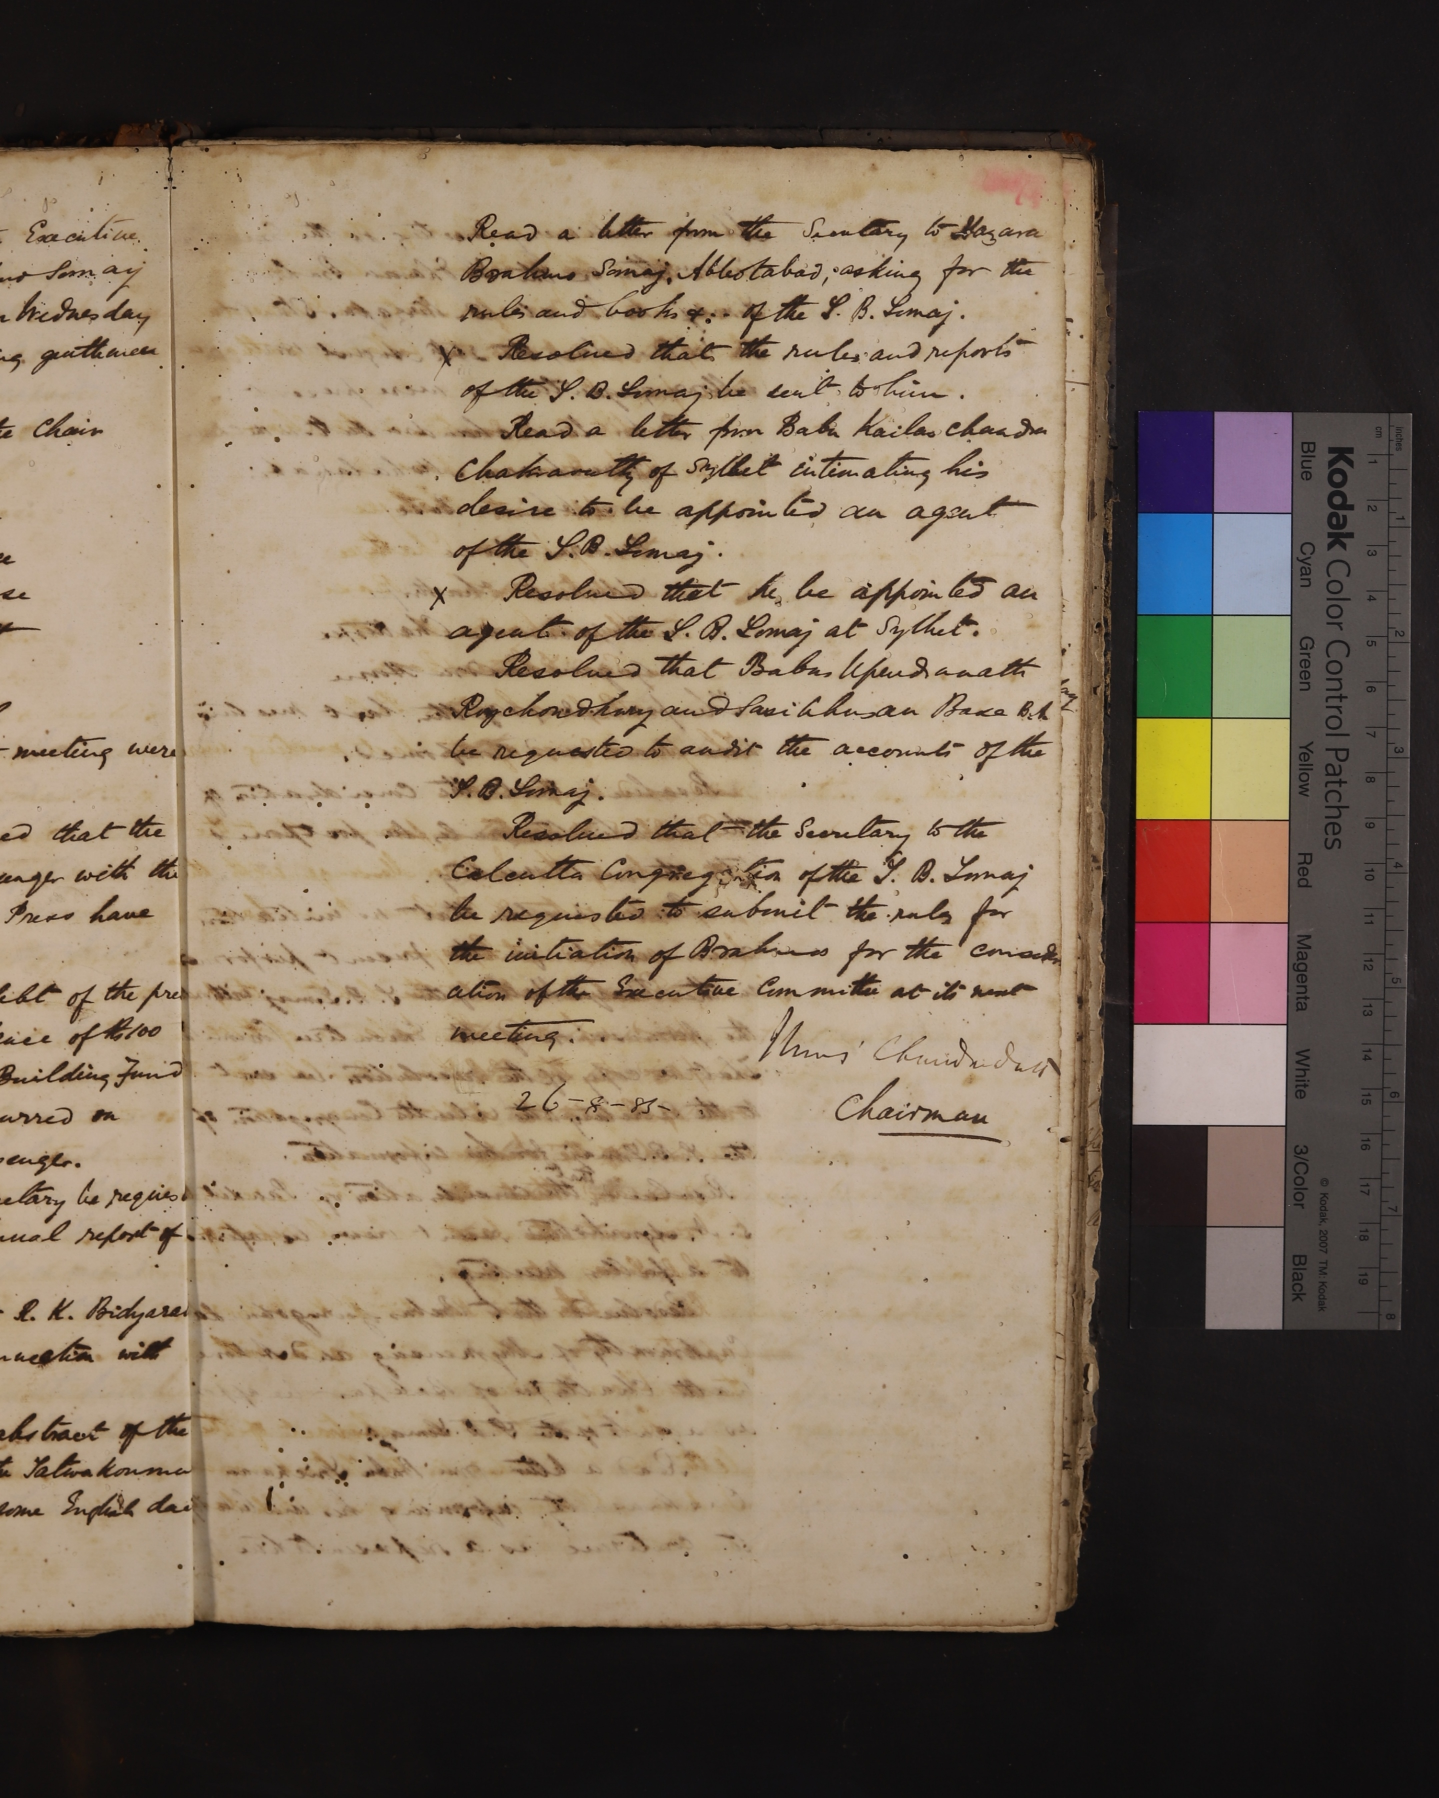 Executive
Somaj
Wednesday
gentlemen
Chair
se
meeting were
ed that the
enger with the
Press have
debt of the pre
of Rs 100
Building Fund
urred on
senger.
etary be reques
nual report of
R. K. Bidyara
nnection with
abstract of the
Satwakouma
some English dai
Read a letter from the Secretary to Hazara
Brahmo Somaj, Abbotabad, asking for the
rules and books &. of the S. B. Somaj.
x Resolved that the rules and reports
of the S. B. Somaj be sent to him.
Read a letter from Babu Kailas Chandra
Chakravutty of Sylhet intimating his
desire to be appointed an agent
of the S. B. Somaj.
x Resolved that he be appointed an
agent of the S. B. Somaj at Sylhet.
Resolved that Babus Upendranath
Roychowdhury and Sasibhusan Base B.A
be requested to audit the accounts of the
S. B. Somaj.
Resolved that the Secretary to the
Calcutta Congregation of the S. B. Somaj
be requested to submit the rules for
the initiation of Brahmos for the consider
ation of the Executive Committee at its next
meeting.
Chandra Dutt
26-8-85
Chairman
Kodak Color Control Patches
Blue Cyan Green Yellow Red Magenta White 3/Color Black
© Kodak, 2007 TM: Kodak
inches 1 2 3 4 5 6 7 8
cm 1 2 3 4 5 6 7 8 9 10 11 12 13 14 15 16 17 18 19